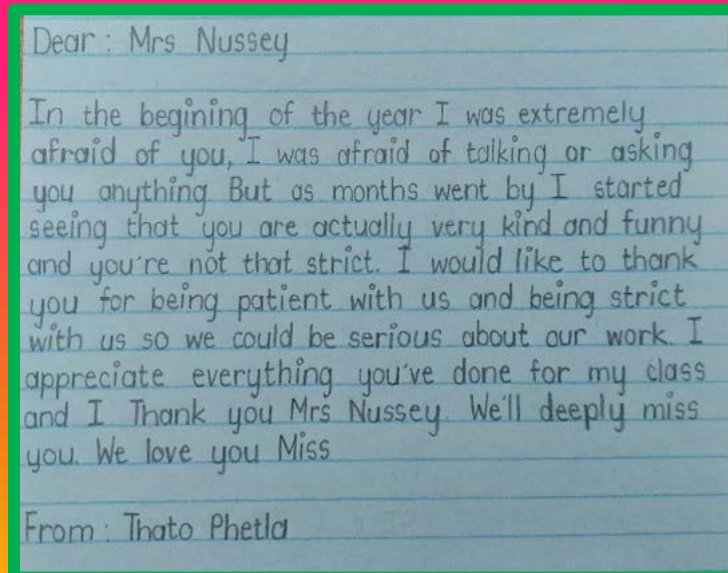 Dear : Mrs Nussey
In the begining of the year I was extremely
afraid of you, I was afraid of talking or asking
you anything But as months went by I started
seeing that you are actually very kind and funny
and you're not that strict. I would like to thank
you for being patient with us and being strict
with us so we could be serious about our work. I
appreciate everything you've done for my class
and I Thank you Mrs Nussey. We'll deeply miss
you. We love you Miss
From : Thato Phetla